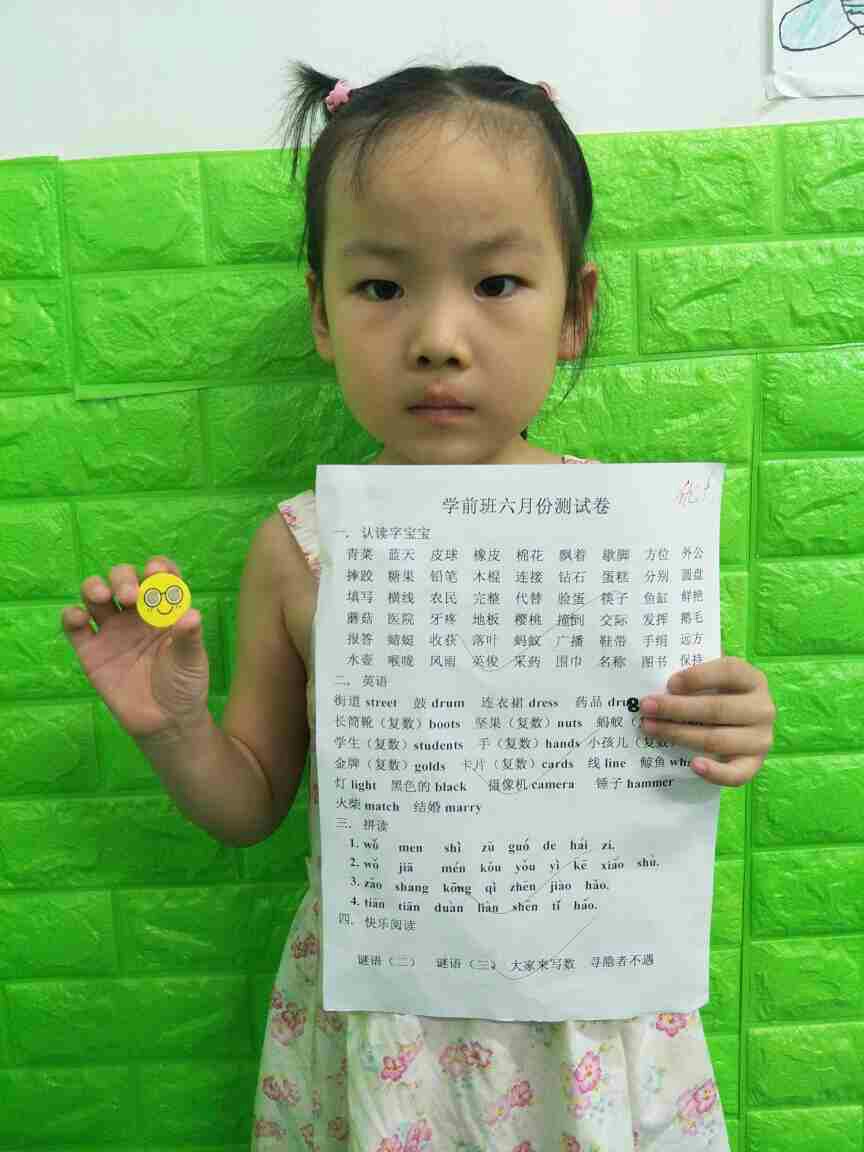 优
学前班六月份测试卷
一. 认读字宝宝
青菜 蓝天 皮球 橡皮 棉花 飘着 歇脚 方位 外公
摔跤 糖果 铅笔 木棍 连接 钻石 蛋糕 分别 圆盘
填写 横线 农民 完整 代替 脸蛋 筷子 鱼缸 鲜艳
蘑菇 医院 牙疼 地板 樱桃 撞倒 交际 发挥 鹅毛
报答 蜻蜓 收获 落叶 蚂蚁 广播 鞋带 手绢 远方
水壶 喉咙 风雨 英俊 采药 围巾 名称 图书 保持
二. 英语
街道 street 鼓 drum 连衣裙 dress 药品
长筒靴（复数）boots 坚果（复数）nuts 蚂蚁
学生（复数）students 手（复数）hands 小孩儿（复数
金牌（复数）golds 卡片（复数）cards 线 line 鲸鱼
灯 light 黑色的 black 摄像机 camera 锤子 hammer
火柴 match 结婚 marry
三. 拼读
1. wǒ men shì zǔ guó de hái zi.
2. wǒ jiā mén kǒu yǒu yì kē xiǎo shù.
3. zǎo shang kōng qì zhēn jiào hǎo.
4. tiān tiān duàn liàn shēn tǐ hǎo.
四. 快乐阅读
谜语（二） 谜语（三） 大家来写数 寻隐者不遇